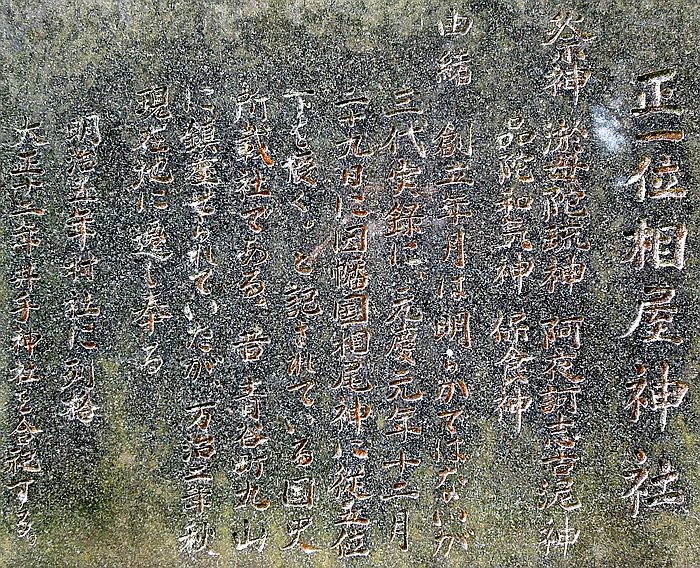 正一位相屋神社
祭神 淤母陀琉神 阿夜訶志古泥神
品陀和気神 保食神
由緒 創立年月は明らかではないが
三代実録に、元慶元年十二月
二十九日に因幡国相尾神に従五位
下を授く。と記されている国史
所載社である。昔青谷町丸山
に鎮座せられていたが、万治二年秋
現在地に遷し奉る
明治五年村社に列格
大正十二年井手神社を合祀する